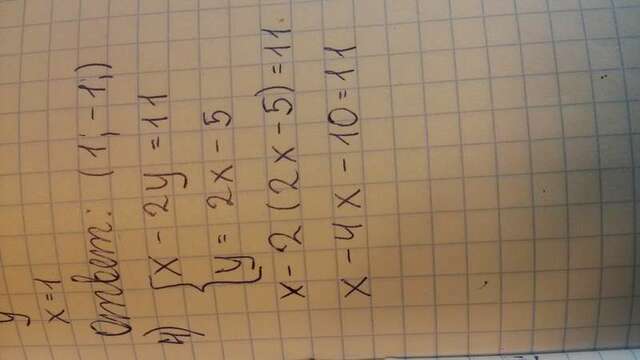 y
x=1
Ответ: (1; -1;)
4) { x - 2y = 11
y = 2x - 5
x - 2 (2x - 5) = 11
x - 4x - 10 = 11